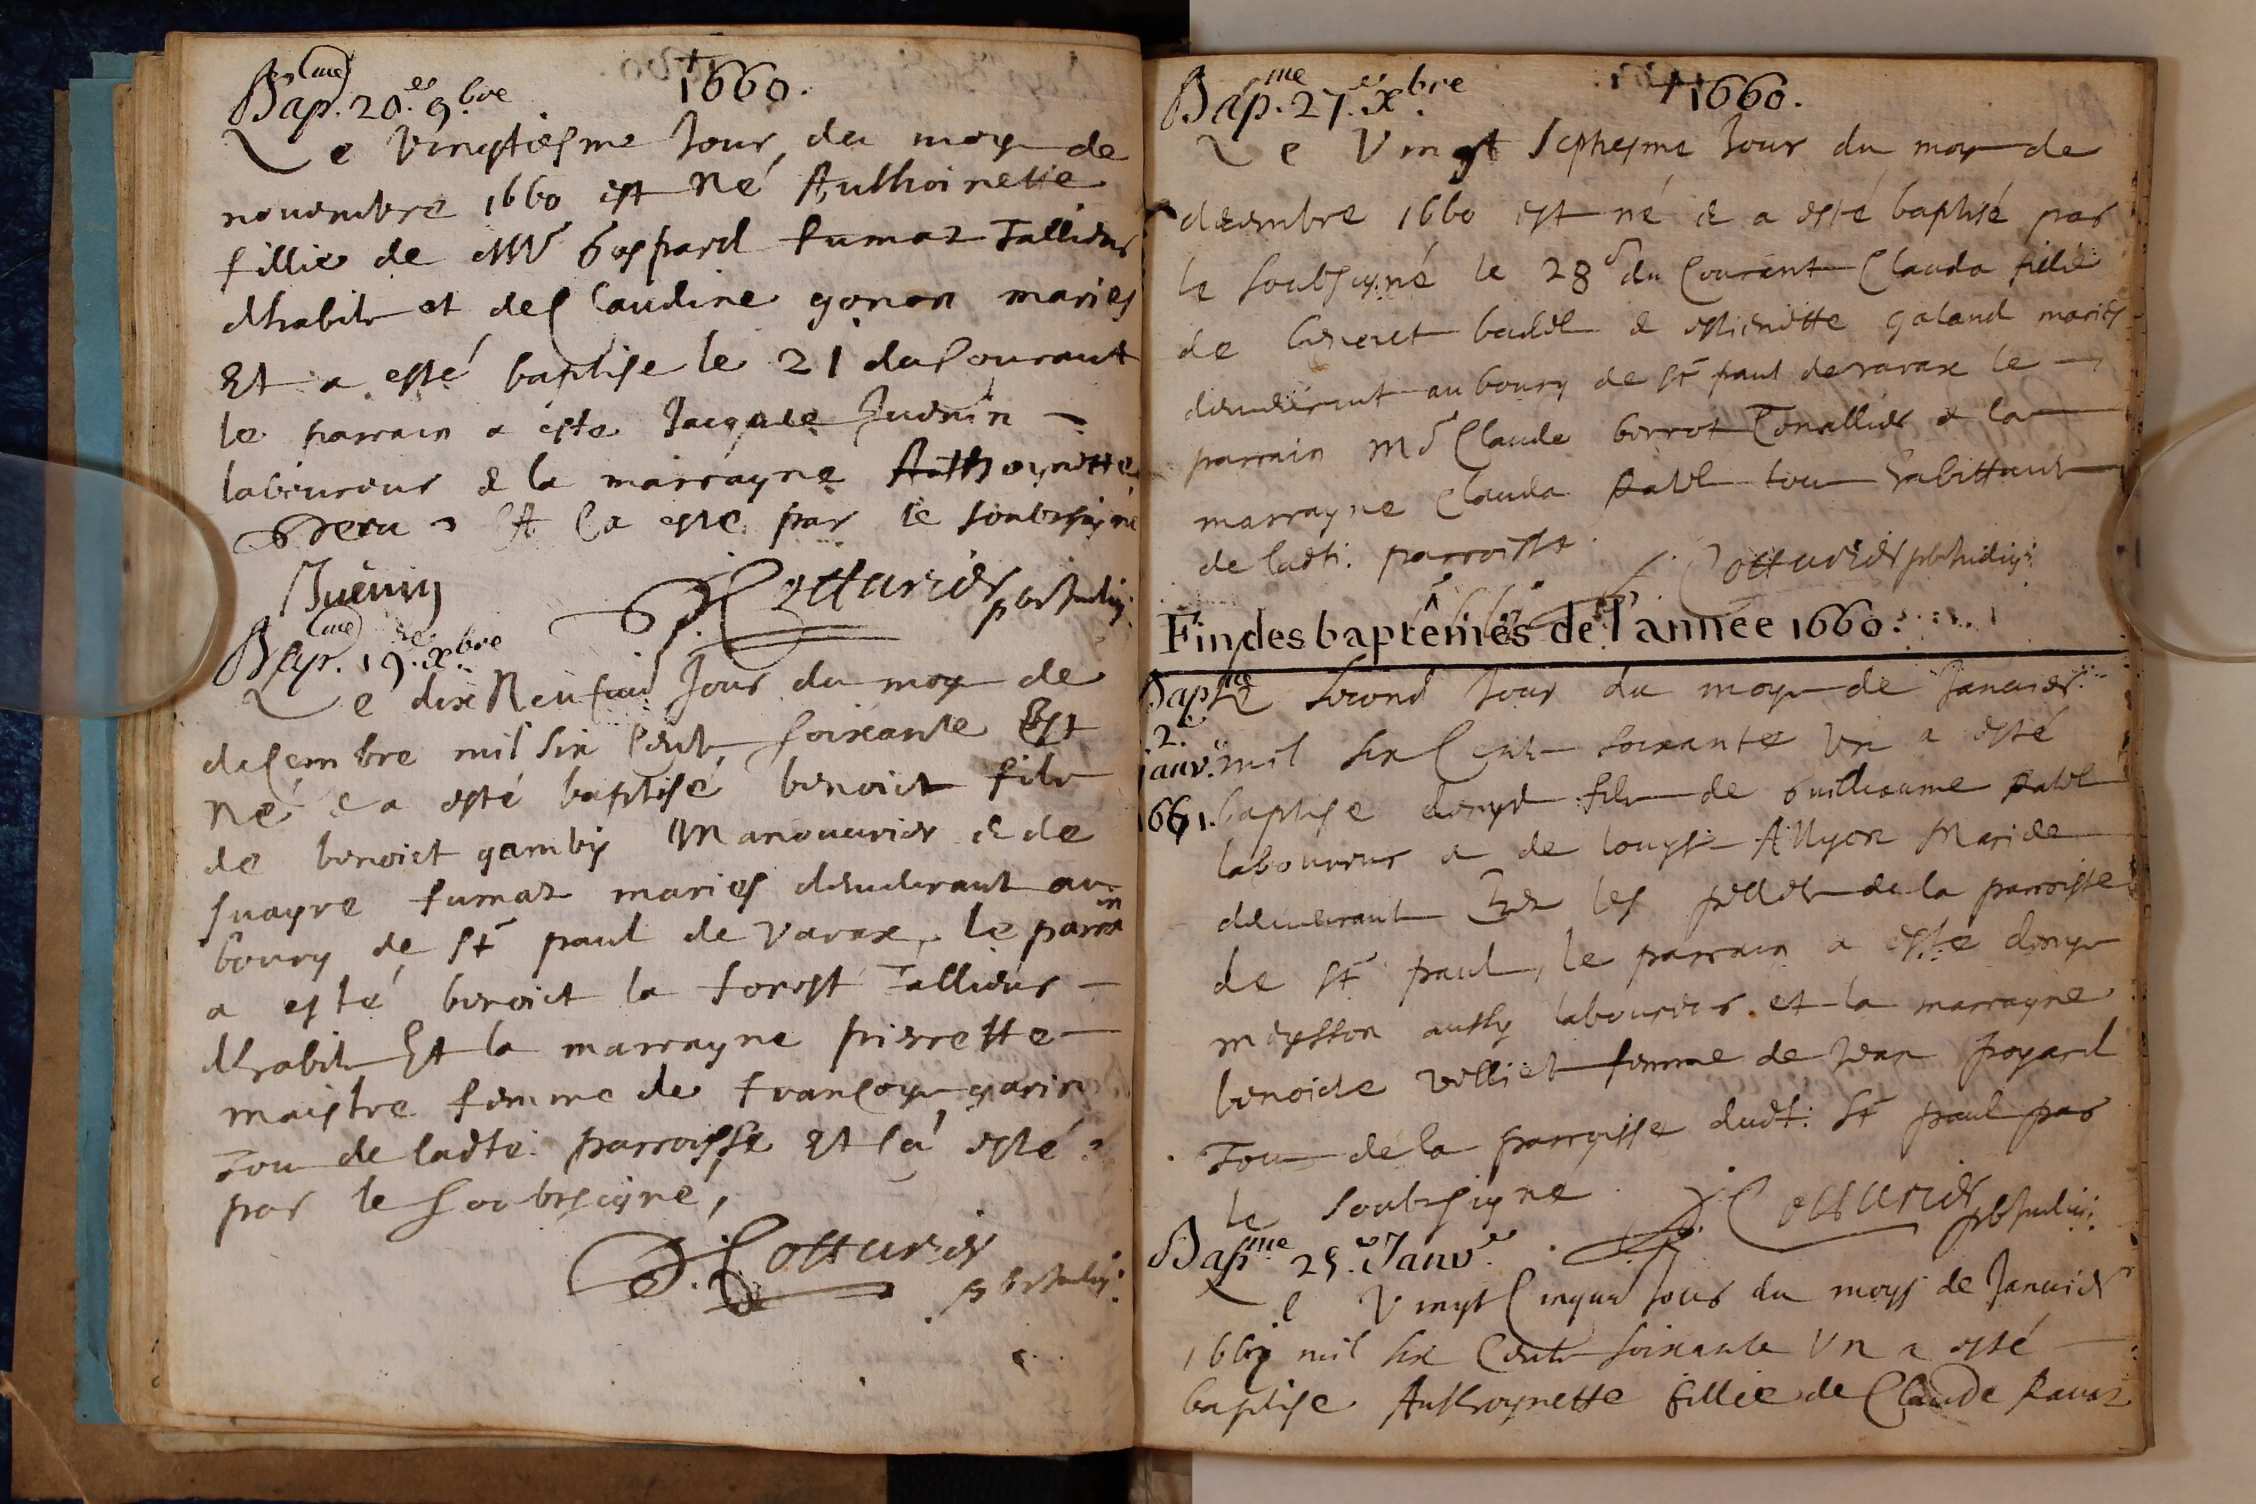 1660.
Bap.me 20.e 9.bre
Le vingtiesme Jour du moys de
novembre 1660 est né Anthoinette
fillie de Mre Gaspard fumaz Tallieur
dhabitz et de Claudine gonon maries
Et a esté baptise le 21 du Courant
le parrain a este Jacques Juenin
laboureur & la marrayne Anthoynette
Et la este par le soubsigne
Juenin
J. Cotturier pbr Indig:
Bap.me 19.e x.bre
Le dix Neufvie Jour du moys de
decembre mil six Cents soixante Est
né & a esté baptisé benoict filz
de benoict gambin Manouvrier & de
suayre fumaz maries demeurant au
bourg de St paul de varax, le parrain
a esté benoict la forest Tallieur
dhabitz Et la marrayne pierrette
maistre femme de francoys garin
Tous de ladte parroisse Et la esté
par le soubsigné,
J. Cotturier
pbr Indig:
1660.
Bap.me 27.e x.bre
Le Vingt septiesme Jour du moys de
decembre 1660 est né & a esté baptisé par
le soubsigné le 28e du Courant Clauda fillie
de benoict badel & estienette galand maries
demeurant au bourg de St paul de varax le
parrain Mre Claude borrot Tonallier & la
marrayne Clauda Ravel tous habittantz
de ladte. parroisse
J. Cotturier pbr Indig:
Fin des baptêmes de l'année 1660.
Bap.me
2.e
janv.
1661.
Le second Jour du moys de Janvier
mil six Cents soixante Un a esté
baptise denys filz de Guilliaume Ravel
laboureur & de louyse Allyon Maries
demeurant Es les pellet de la parroisse
de St paul, le parrain a esté denys
moysson aussy laboureur. et la marrayne
benoicte velliet femme de Jean Poyard
Tous de la parroisse dudt: St paul par
le soubsigne
J. Cotturier pbr Indig:
Bap.me 25.e Janv.e
Le Vingt Cinque Jour du moys de Janvier
1661 mil six Cents soixante Un a esté
baptise Anthoynette fillie de Claude Ravaz